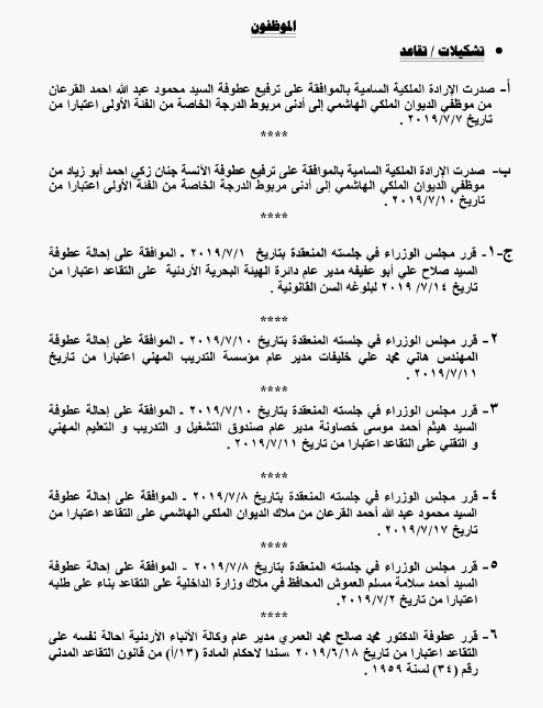 الموظفون
• تشكيلات / تقاعد
أ- صدرت الإرادة الملكية السامية بالموافقة على ترفيع عطوفة السيد محمود عبد الله احمد القرعان
من موظفي الديوان الملكي الهاشمي إلى أدنى مربوط الدرجة الخاصة من الفئة الأولى اعتبارا من
تاريخ ٢٠١٩/٧/٧ .
****
ب- صدرت الإرادة الملكية السامية بالموافقة على ترفيع عطوفة الآنسة جنان زكي احمد أبو زياد من
موظفي الديوان الملكي الهاشمي إلى أدنى مربوط الدرجة الخاصة من الفئة الأولى اعتبارا من
تاريخ ٢٠١٩/٧/١٠ .
****
ج-١- قرر مجلس الوزراء في جلسته المنعقدة بتاريخ ٢٠١٩/٧/١ - الموافقة على إحالة عطوفة
السيد صلاح علي أبو عفيفه مدير عام دائرة الهيئة البحرية الأردنية على التقاعد اعتبارا من
تاريخ ٧/١٤/ ٢٠١٩ لبلوغه السن القانونية .
****
٢- قرر مجلس الوزراء في جلسته المنعقدة بتاريخ ٢٠١٩/٧/١٠ - الموافقة على إحالة عطوفة
المهندس هاني محمد علي خليفات مدير عام مؤسسة التدريب المهني اعتبارا من تاريخ
٢٠١٩/٧/١١ .
****
٣- قرر مجلس الوزراء في جلسته المنعقدة بتاريخ ٢٠١٩/٧/١٠ - الموافقة على إحالة عطوفة
السيد هيثم أحمد موسى خصاونة مدير عام صندوق التشغيل و التدريب و التعليم المهني
و التقني على التقاعد اعتبارا من تاريخ ٢٠١٩/٧/١١ .
****
٤- قرر مجلس الوزراء في جلسته المنعقدة بتاريخ ٢٠١٩/٧/٨ - الموافقة على إحالة عطوفة
السيد محمود عبد الله أحمد القرعان من ملاك الديوان الملكي الهاشمي على التقاعد اعتبارا من
تاريخ ٢٠١٩/٧/١٧ .
****
٥- قرر مجلس الوزراء في جلسته المنعقدة بتاريخ ٢٠١٩/٧/٨ - الموافقة على إحالة عطوفة
السيد أحمد سلامة مسلم العموش المحافظ في ملاك وزارة الداخلية على التقاعد بناء على طلبه
اعتبارا من تاريخ ٢٠١٩/٧/٢.
****
٦- قرر عطوفة الدكتور محمد صالح محمد العمري مدير عام وكالة الأنباء الأردنية احالة نفسه على
التقاعد اعتبارا من تاريخ ٢٠١٩/٦/١٨ ،سندا لاحكام المادة (١٣/أ) من قانون التقاعد المدني
رقم (٣٤) لسنة ١٩٥٩ .